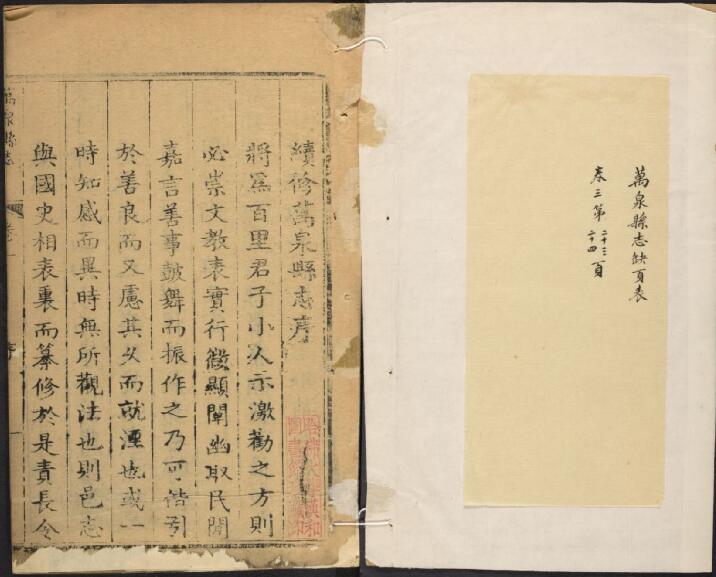 萬泉縣志缺頁表
卷三第二十三、二十四頁
續修萬泉縣志序
將爲百里君子小人示激勸之方則
必崇文教表實行微顯闡幽取民間
嘉言善事鼓舞而振作之乃可偕引
於善良而又慮其久而就湮也或一
時知感而異時無所觀法也則邑志
與國史相表裏而纂修於是責長令
萬泉縣志
卷一
序
一